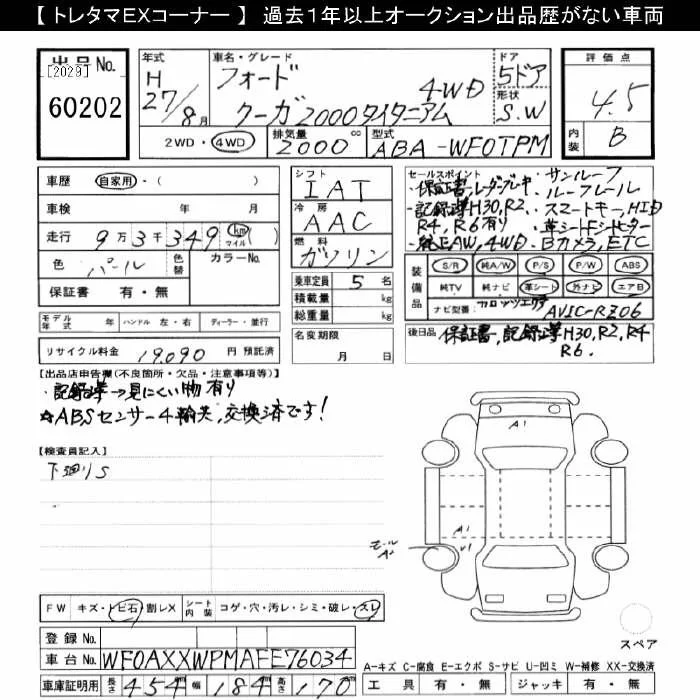 【 トレタマEXコーナー 】 過去1年以上オークション出品歴がない車両
出品No.
[2029]
60202
年式 車名・グレード ドア 評価点
H フォード 4WD 5ドア 4.5
27/8月 クーガ2000タイタニアム 形状 S.W
2WD・4WD 排気量 2000 cc 型式 ABA-WF0TPM 内装 B
車歴 自家用・( )
車検 年 月
走行 9万3千349 km マイル( )
色 パール 色替 カラーNo.
保証書 有・無
シフト IAT
冷房 AAC
燃料 ガソリン
乗車定員 5 名
積載量 kg
総重量 kg
セールスポイント ・サンルーフ
・保証書,レーダーブレーキ ・ルーフレール
・記録簿H30,R2, ・スマートキー,HID
R4,R6有り ・革シート,シートヒーター
・純正AW,4WD ・Bカメラ,ETC
装備品 S/R 純A/W P/S P/W ABS
純TV 純ナビ 革シート 外ナビ エアB
ナビ型番( カロッツェリア AVIC-RZ06
モデル年式 年 ハンドル 左・右 ディーラー・並行
名変期限 月 日
後日品 保証書,記録簿H30,R2,R4
R6.
リサイクル料金 19,090 円 預託済
【出品店申告欄(不良箇所・欠品・注意事項等)】
・記録簿→見にくい物有り
☆ABSセンサー4輪共,交換済です!
【検査員記入】
下廻りS
A1
A1
モール A1
U1
FW キズ・トビ石・割レX シート内装 コゲ・穴・汚レ・シミ・破レ・スレ
登録 No.
車台 No. WF0AXXWPMAFE76034
車庫証明用 長さ 454 幅 184 高さ 170
スペア
A-キズ C-腐食 E-エクボ S-サビ U-凹ミ W-補修 XX-交換済
工具 有・無 ジャッキ 有・無